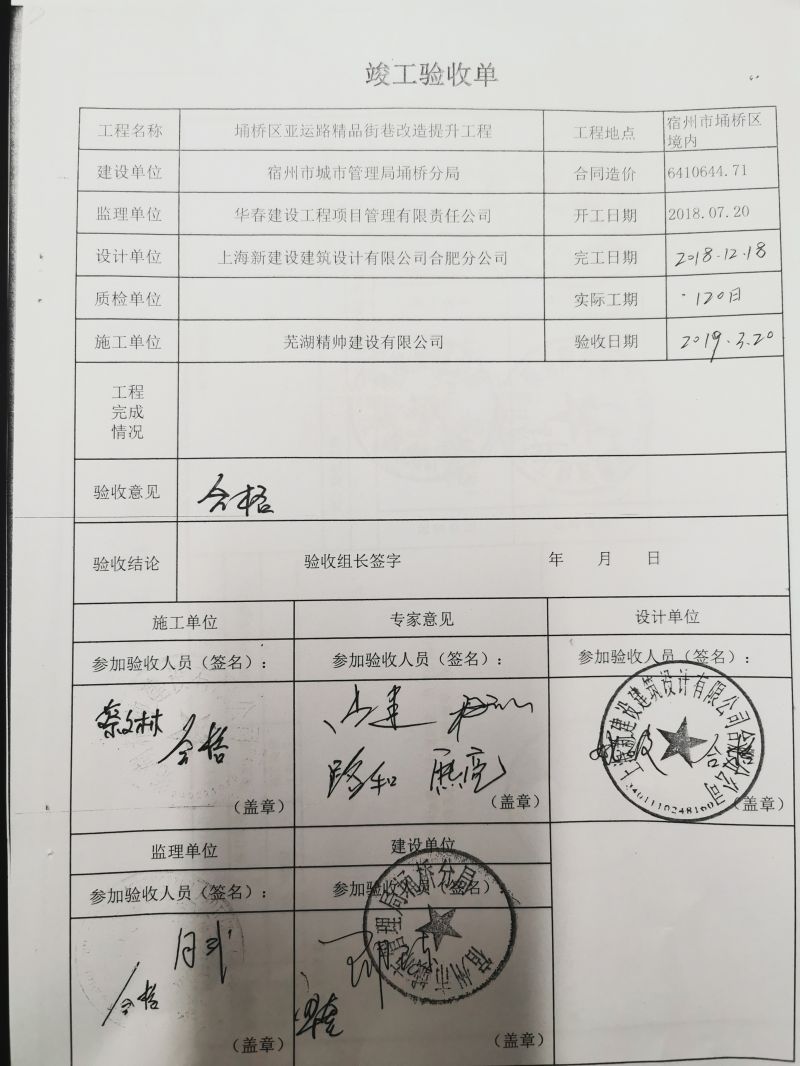 竣工验收单
工程名称 埇桥区亚运路精品街巷改造提升工程 工程地点 宿州市埇桥区
境内
建设单位 宿州市城市管理局埇桥分局 合同造价 6410644.71
监理单位 华春建设工程项目管理有限责任公司 开工日期 2018.07.20
设计单位 上海新建设建筑设计有限公司合肥分公司 完工日期 2018.12.18
质检单位 实际工期 120日
施工单位 芜湖精帅建设有限公司 验收日期 2019.3.20
工程
完成
情况
验收意见 合格
验收结论 验收组长签字 年 月 日
施工单位 专家意见 设计单位
参加验收人员（签名）： 参加验收人员（签名）： 参加验收人员（签名）：
合格
路和
合格
上海新建设建筑设计有限公司合肥分公司
（盖章） （盖章） （盖章）
监理单位 建设单位
参加验收人员（签名）： 参加验收人员（签名）
宿州市城市管理局埇桥分局
合格
（盖章） （盖章）